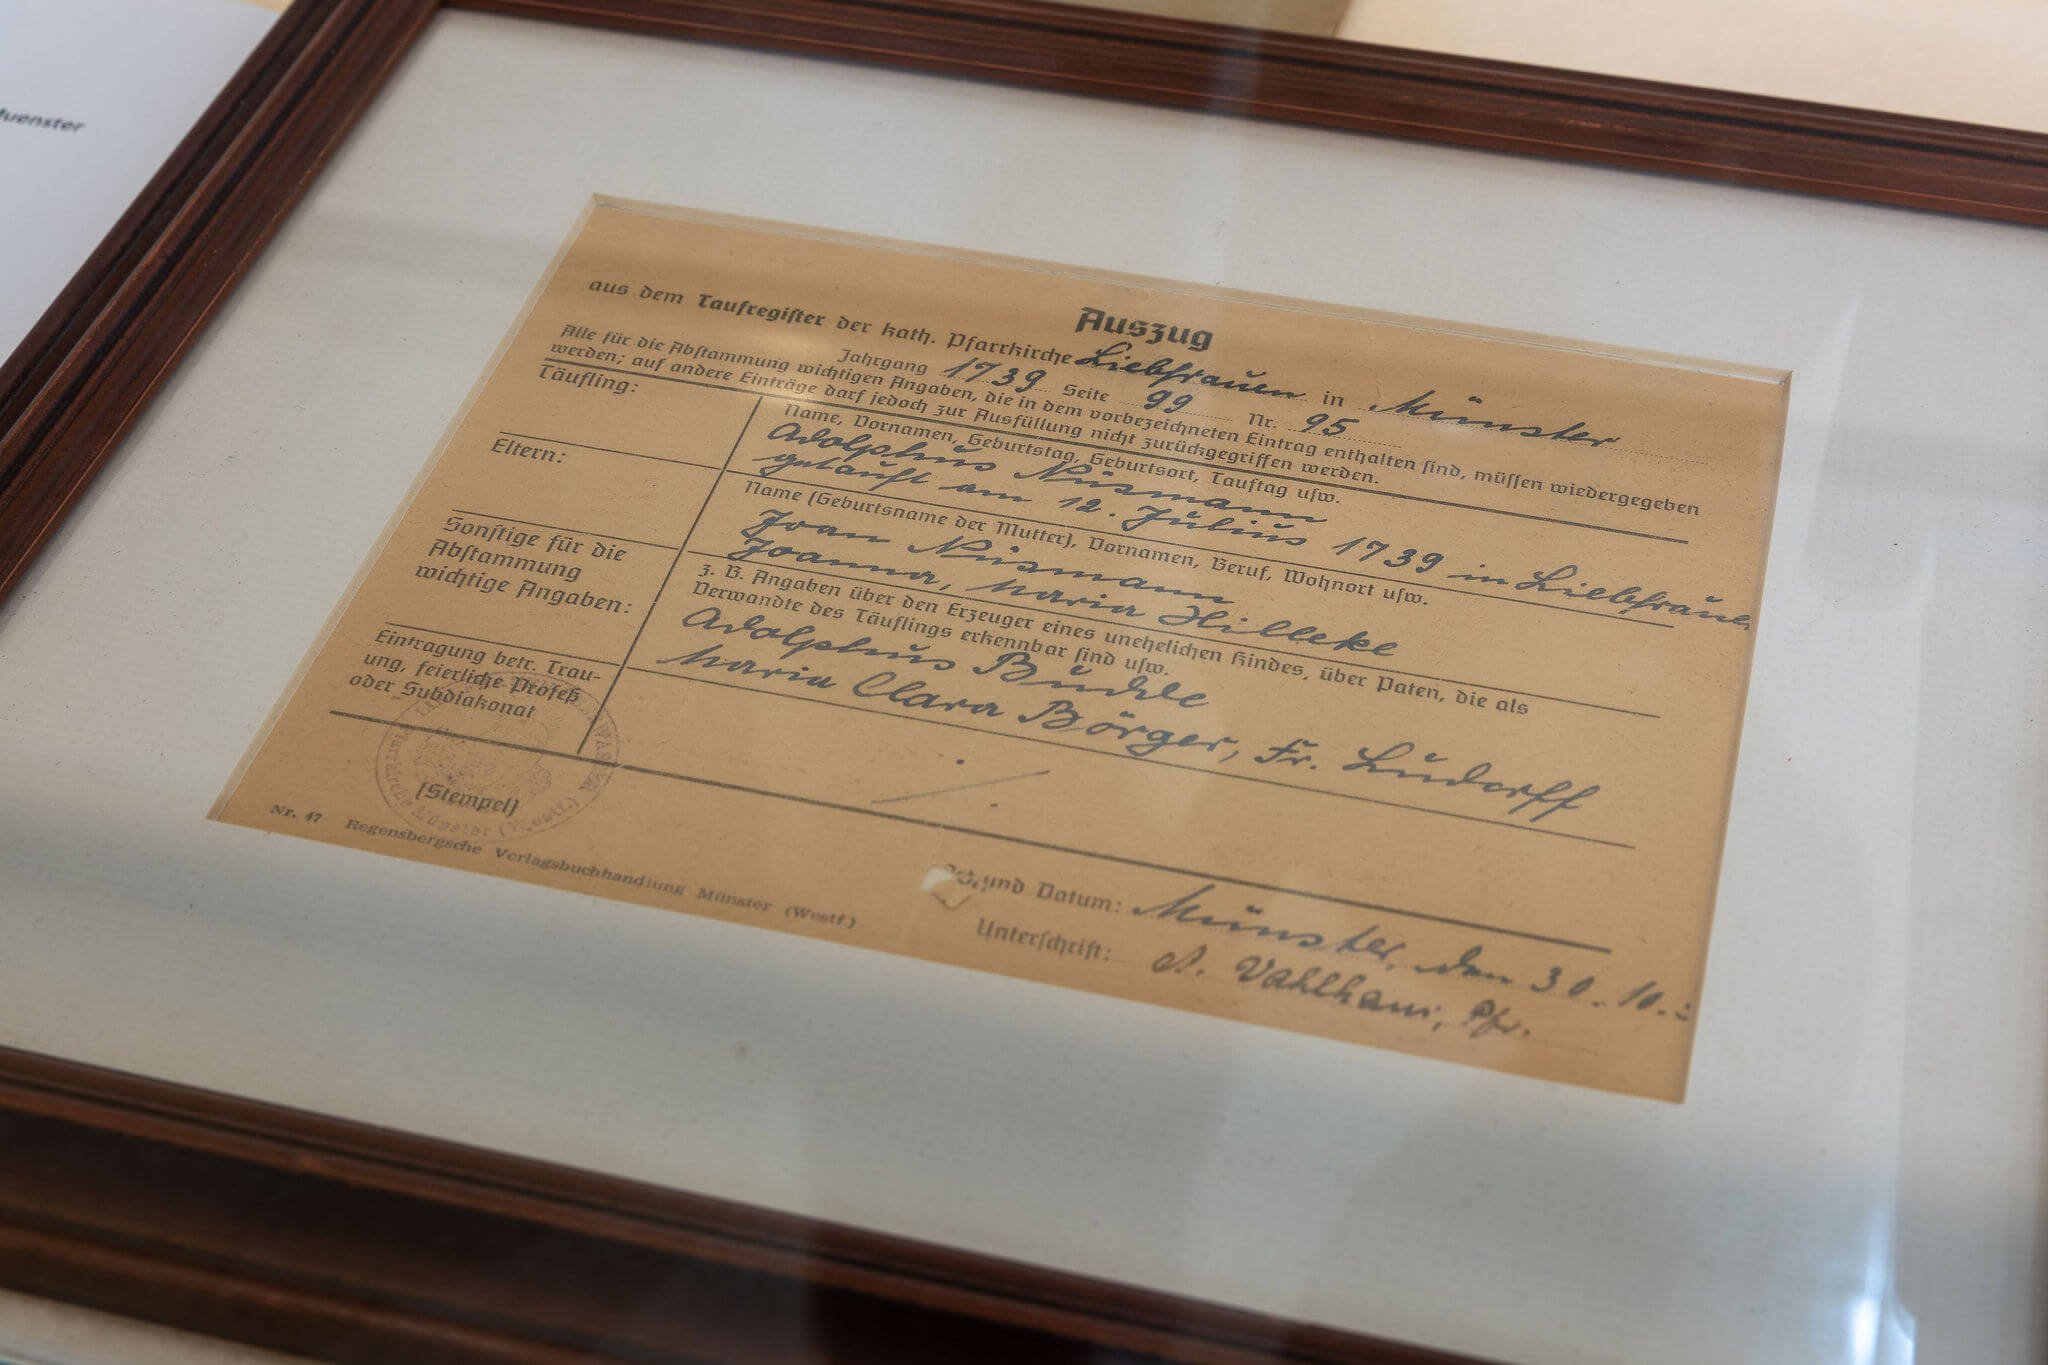 uenster
Auszug
aus dem Taufregister der kath. Pfarrkirche Liebfrauen in Münster
Jahrgang 1739 Seite 99 Nr. 95
Alle für die Abstammung wichtigen Angaben, die in dem vorbezeichneten Eintrag enthalten sind, müssen wiedergegeben
werden; auf andere Einträge darf jedoch zur Ausfüllung nicht zurückgegriffen werden.
Täufling:
Name, Vornamen, Geburtstag, Geburtsort, Tauftag usw.
Adolphus Nüsmann
getauft am 12. Julius 1739 in Liebfrauen
Eltern:
Name (Geburtsname der Mutter), Vornamen, Beruf, Wohnort usw.
Joan Nüsmann
Joanna, Maria Hilleke
Sonstige für die
Abstammung
wichtige Angaben:
z. B. Angaben über den Erzeuger eines unehelichen Kindes, über Paten, die als
Verwandte des Täuflings erkennbar sind usw.
Adolphus Büchle
Maria Clara Börger, Fr. Lüdorff
Eintragung betr. Trau-
ung, feierliche Profeß
oder Subdiakonat
./.
(Stempel)
Pfarrkirche Münster
Ort und Datum: Münster, den 30. 10.
Unterschrift: A. Vahlhaus, Pfr.
Nr. 47 Regensbergsche Verlagsbuchhandlung Münster (Westf.)